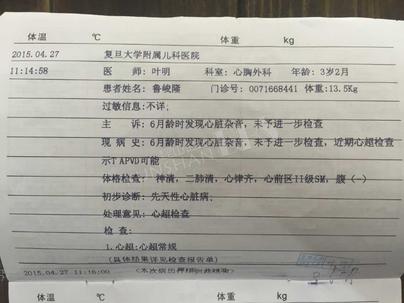 体温 ℃ 体重 kg
2015.04.27 复旦大学附属儿科医院
11:14:58 医 师: 叶明 科室: 心胸外科 年龄: 3岁2月
患者姓名: 鲁峻隆 门诊号: 0071668441 体重:13.5Kg
过敏信息:不详;
主 诉: 6月龄时发现心脏杂音,未予进一步检查
现 病 史: 6月龄时发现心脏杂音,未予进一步检查,近期心超检查
示TAPVD可能
体格检查: 神清,二肺清,心律齐,心前区II级SM,腹(-)
初步诊断: 先天性心脏病;
处理意见: 心超检查
检 查:
1.心超:心超常规
(具体结果详见检查报告单)
2015.04.27 11:16:00 (本次病历
体温 ℃ 体重 kg